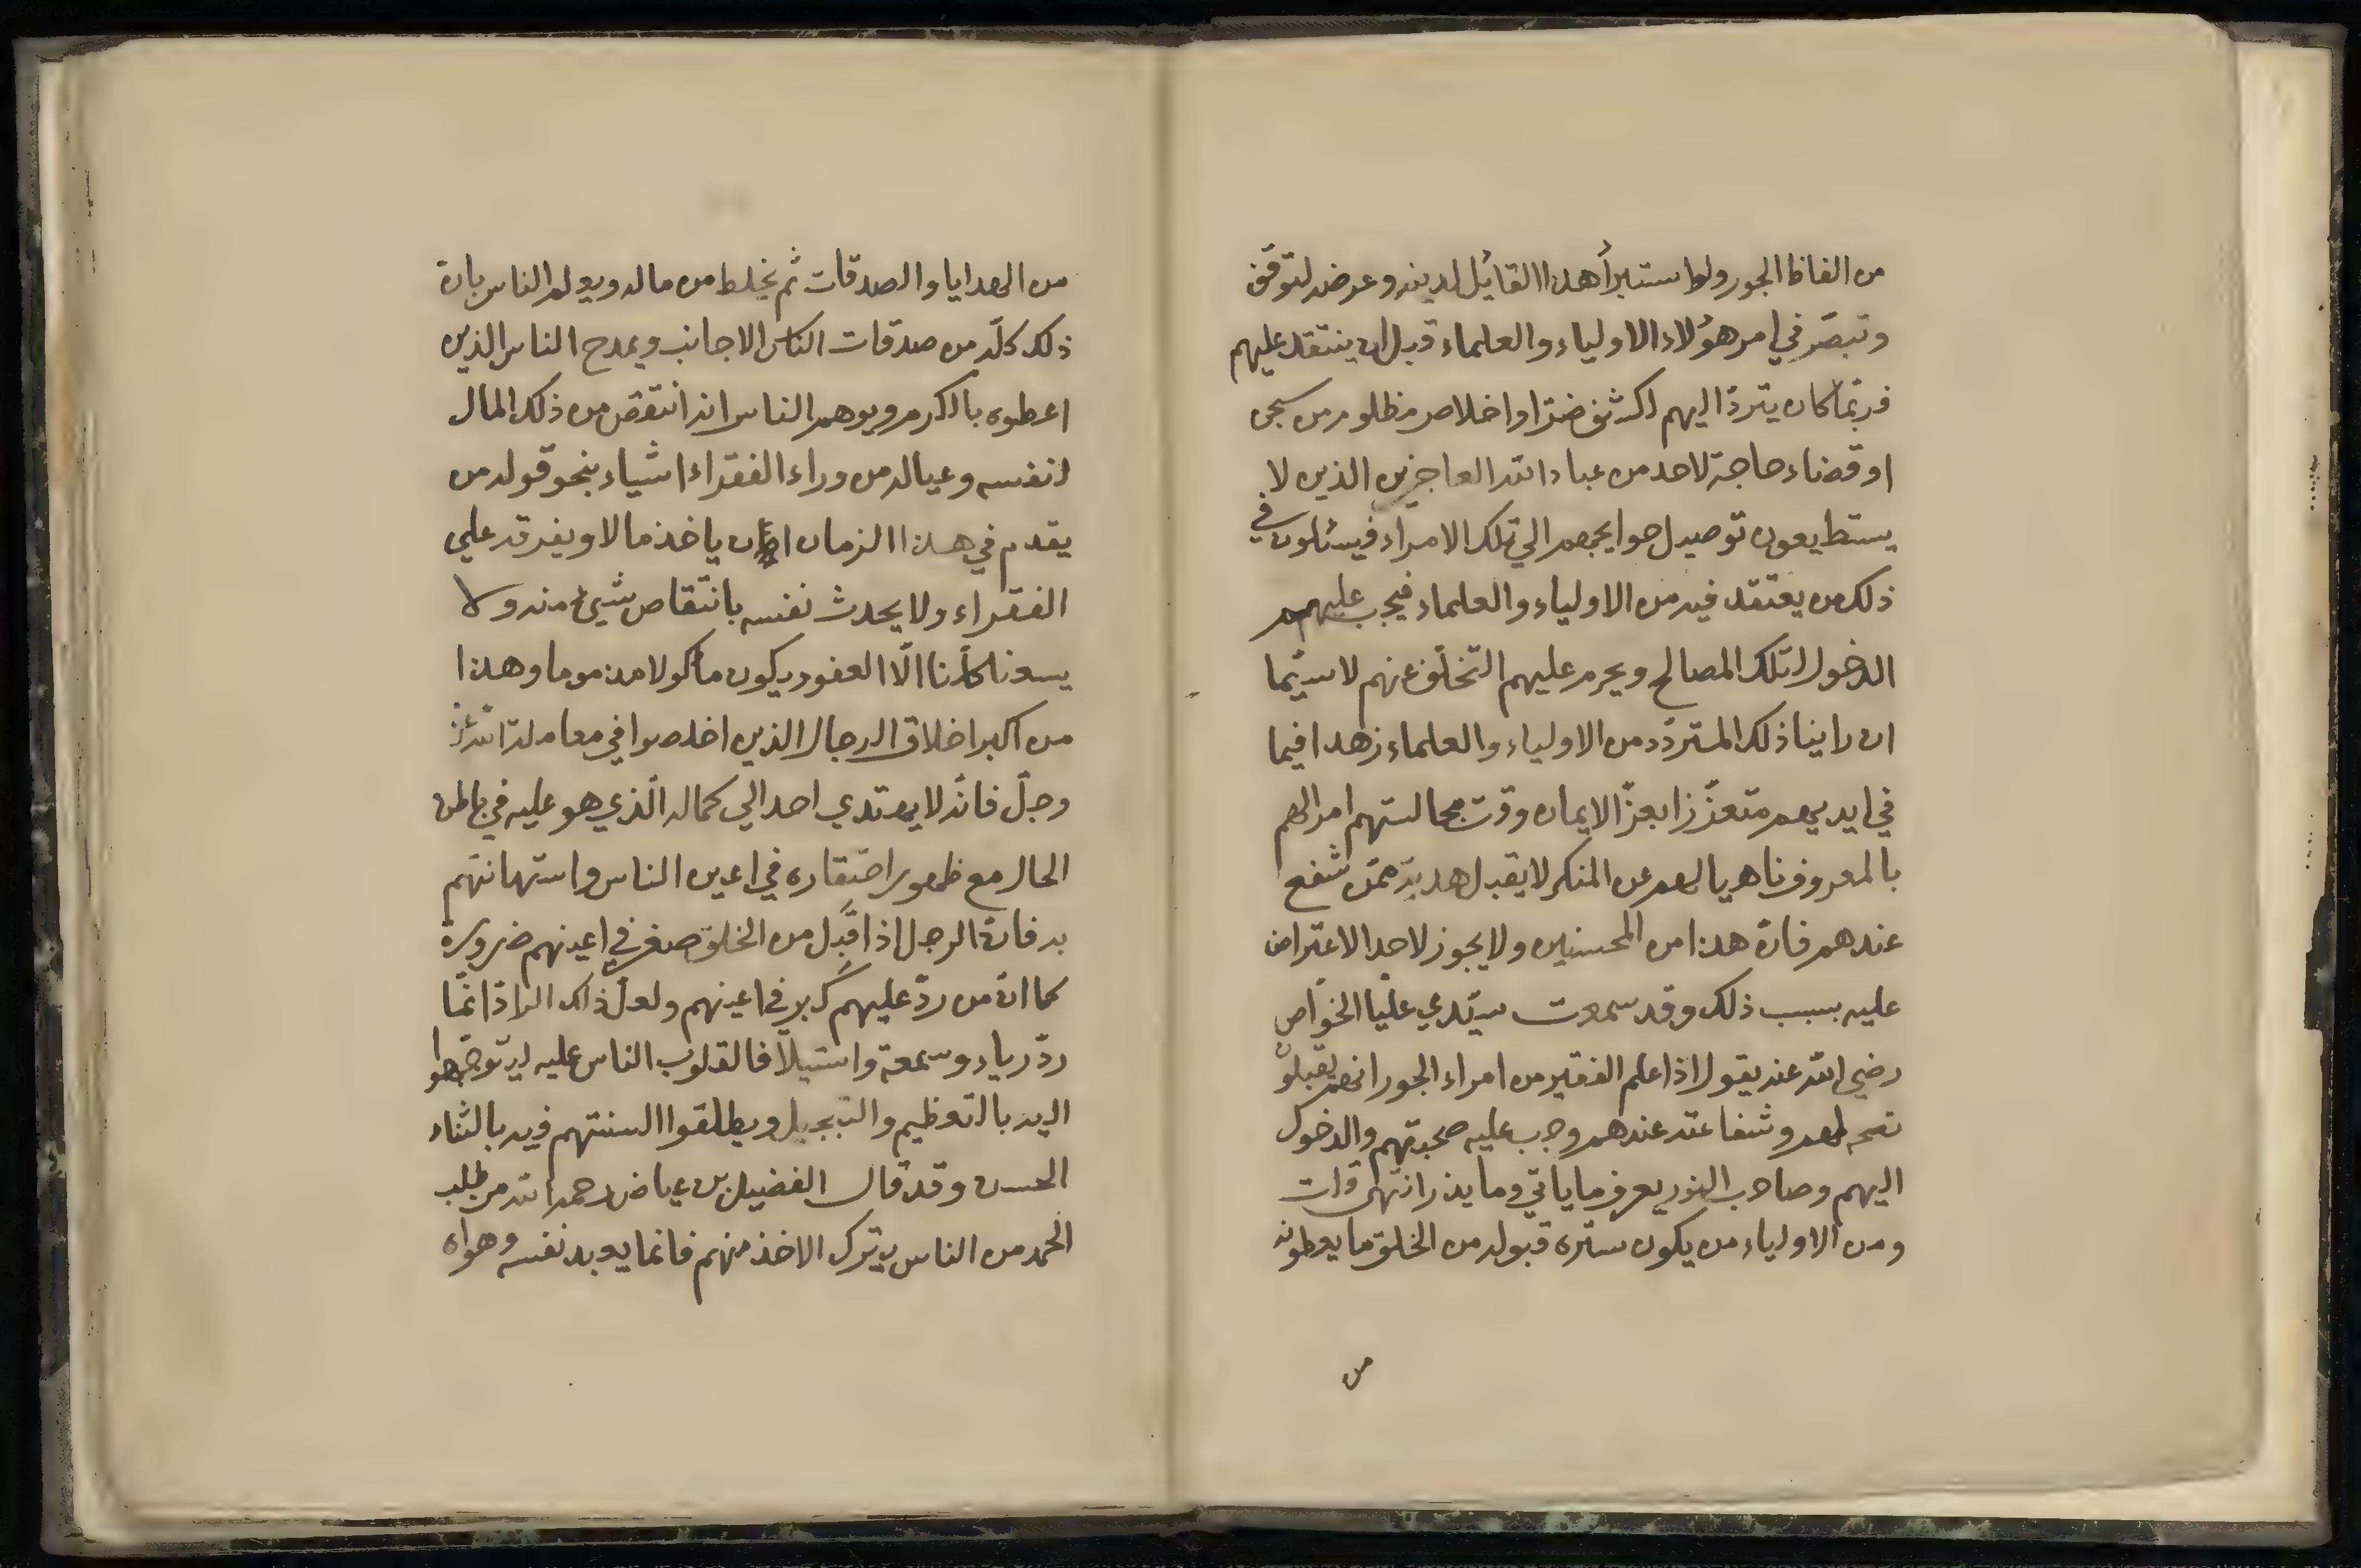 من الفاظ الجور ولو استبرأ هذا القائل لدينه وعرضه لتوقف
وتبصّر في امر هؤلاء الاولياء والعلماء قبل ان ينتقد عليهم
فربّما كان يتردّ اليهم لكشف ضرّ او اخلاص مظلوم من سجن
او قضاء حاجة لاحد من عباد الله العاجزين الذين لا
يستطيعون توصيل حوايجهم الي تلك الامراء فيسئلون في
ذلك من يعتقد فيه من الاولياء والعلماء فيجب عليهم
الدخول لتلك المصالح ويحرم عليهم التخلّف عنهم لا سيّما
ان راينا ذلك المتردّد من الاولياء والعلماء زهدا فيما
في ايديهم متعزّزا بعزّ الايمان وقت مجالستهم امرا لهم
بالمعروف ناهيا لهم عن المنكر لا يقبل هديّة ممّن شفع
عندهم فانّ هذا من المحسنين ولا يجوز لاحد الاعتراض
عليه بسبب ذلك وقد سمعت سيّدي عليّا الخوّاص
رضي الله عنه يقول اذا علم الفقير من امراء الجور انهم يقبلون
نصحه لهم وشفاعته عندهم وجب عليه صحبتهم والدخول
اليهم وصاحب النور يعرف ما ياتي وما يذر انتهى قلت
ومن الاولياء من يكون ستره قبوله من الخلق ما يعطونه
من
من الهدايا والصدقات ثم يخلط من ماله ويعلم الناس بانّ
ذلك كلّه من صدقات الناس الاجانب ويمدح الناس الذين
اعطوه بالكرم ويوهم الناس انه انتقص من ذلك المال
لنفسه وعياله من وراء الفقراء اشياء بنحو قوله من
يقدم في هذا الزمان ان ياخذ مالا ويفرقه علي
الفقراء ولا يحدث نفسه بانتقاص شيئ منه ولا
يسعنا كلّنا الّا العفو ويكون مأكولا مذموما وهذا
من اكبر اخلاق الرجال الذين اخلصوا في معاملة الله عزّ
وجلّ فانّه لا يهتدي احد الي كماله الّذي هو عليه في باطن
الحال مع ظهور احتقاره في اعين الناس واستهانتهم
به فانّ الرجل اذا قَبِل من الخلق صغر في اعينهم ضرورة
كما انّ من ردّ عليهم كَبر في اعينهم ولعلّ ذلك الرادّ انّما
ردّ رياء وسمعة واستيلافا لقلوب الناس عليه ليتوجّهوا
اليه بالتعظيم والتبجيل ويطلقوا السنتهم فيه بالثناء
الحسن وقد قال الفضيل بن عياض رحمه الله من طلب
الحمد من الناس بترك الاخذ منهم فانما يعبد نفسه وهواه